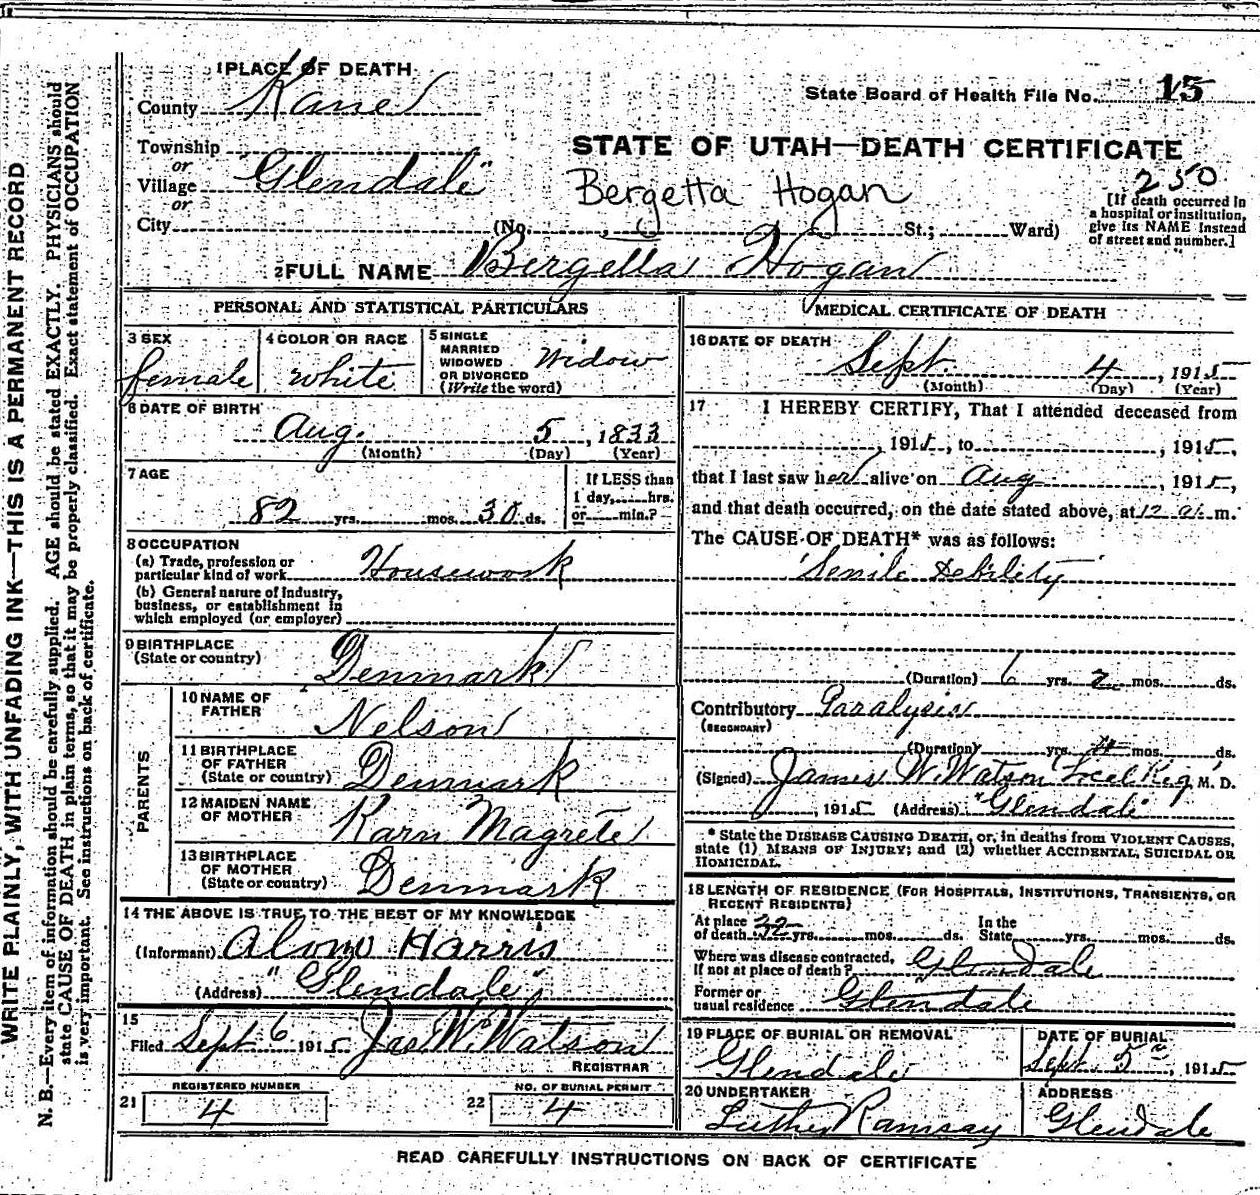 1 PLACE OF DEATH
County Kane
State Board of Health File No. 15
Township
or
Village "Glendale"
or
City
STATE OF UTAH—DEATH CERTIFICATE
Bergetta Hogan
250
[If death occurred in
a hospital or institution,
give its NAME instead
of street and number.]
(No. St.; Ward)
2 FULL NAME Bergetta Hogan
PERSONAL AND STATISTICAL PARTICULARS
3 SEX
female
4 COLOR OR RACE
white
5 SINGLE
MARRIED
WIDOWED
OR DIVORCED
(Write the word)
Widow
6 DATE OF BIRTH
Aug. 5, 1833
(Month) (Day) (Year)
7 AGE
82 yrs. mos. 30 ds.
If LESS than
1 day, hrs.
or min.?
8 OCCUPATION
(a) Trade, profession or
particular kind of work Housework
(b) General nature of Industry,
business, or establishment in
which employed (or employer)
9 BIRTHPLACE
(State or country) Denmark
PARENTS
10 NAME OF
FATHER Nelson
11 BIRTHPLACE
OF FATHER
(State or country) Denmark
12 MAIDEN NAME
OF MOTHER Karn Magrete
13 BIRTHPLACE
OF MOTHER
(State or country) Denmark
14 THE ABOVE IS TRUE TO THE BEST OF MY KNOWLEDGE
(Informant) Alonzo Harris
(Address) "Glendale"
15
Filed Sept 6 1915 Jas W. Watson
REGISTRAR
REGISTERED NUMBER
21 4
NO. OF BURIAL PERMIT
22 4
MEDICAL CERTIFICATE OF DEATH
16 DATE OF DEATH
Sept. 4, 1915
(Month) (Day) (Year)
17 I HEREBY CERTIFY, That I attended deceased from
, 1915, to , 1915,
that I last saw her alive on Aug , 1915,
and that death occurred, on the date stated above, at 12 a. m.
The CAUSE OF DEATH* was as follows:
Senile Debility
(Duration) 6 yrs. 2 mos. ds.
Contributory Paralysis
(SECONDARY)
(Duration) yrs. mos. ds.
(Signed) James W. Watson Local Reg. M. D.
, 1915 (Address) "Glendale"
* State the DISEASE CAUSING DEATH, or, in deaths from VIOLENT CAUSES,
state (1) MEANS OF INJURY; and (2) whether ACCIDENTAL, SUICIDAL OR
HOMICIDAL.
18 LENGTH OF RESIDENCE (FOR HOSPITALS, INSTITUTIONS, TRANSIENTS, OR
RECENT RESIDENTS)
At place
of death 32 yrs. mos. ds.
In the
State yrs. mos. ds.
Where was disease contracted,
If not at place of death? Glendale
Former or
usual residence Glendale
19 PLACE OF BURIAL OR REMOVAL
Glendale
DATE OF BURIAL
Sept. 5, 1915
20 UNDERTAKER
Luther Ramsay
ADDRESS
Glendale
READ CAREFULLY INSTRUCTIONS ON BACK OF CERTIFICATE
WRITE PLAINLY, WITH UNFADING INK—THIS IS A PERMANENT RECORD
N. B.—Every item of information should be carefully supplied. AGE should be stated EXACTLY. PHYSICIANS should
state CAUSE OF DEATH in plain terms, so that it may be properly classified. Exact statement of OCCUPATION
is very important. See instructions on back of certificate.